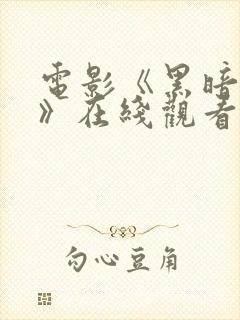 電影《黑暗
》在綫觀看
勾心豆角